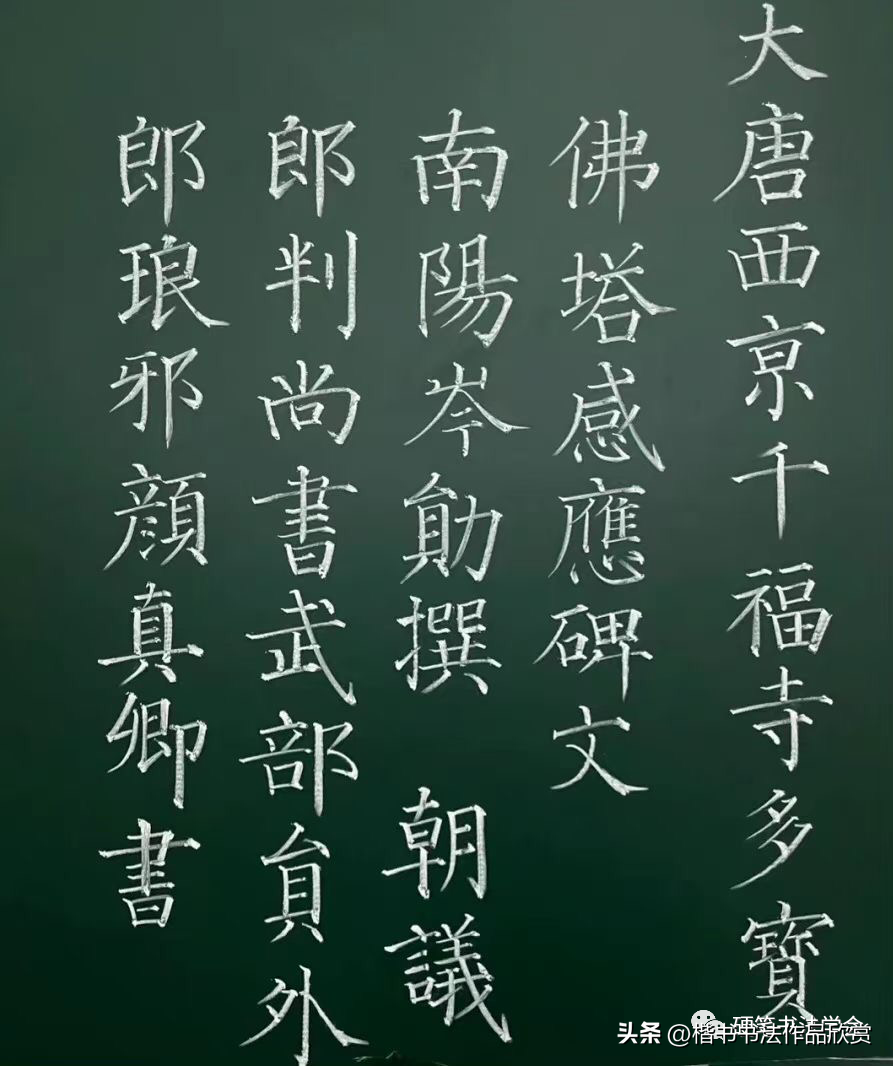 大唐西京千福寺多寳
佛塔感應碑文
南陽岑勛撰 朝議
郎判尚書武部貟外
郎琅邪顔真卿書
头条 @楷书书法作品欣赏